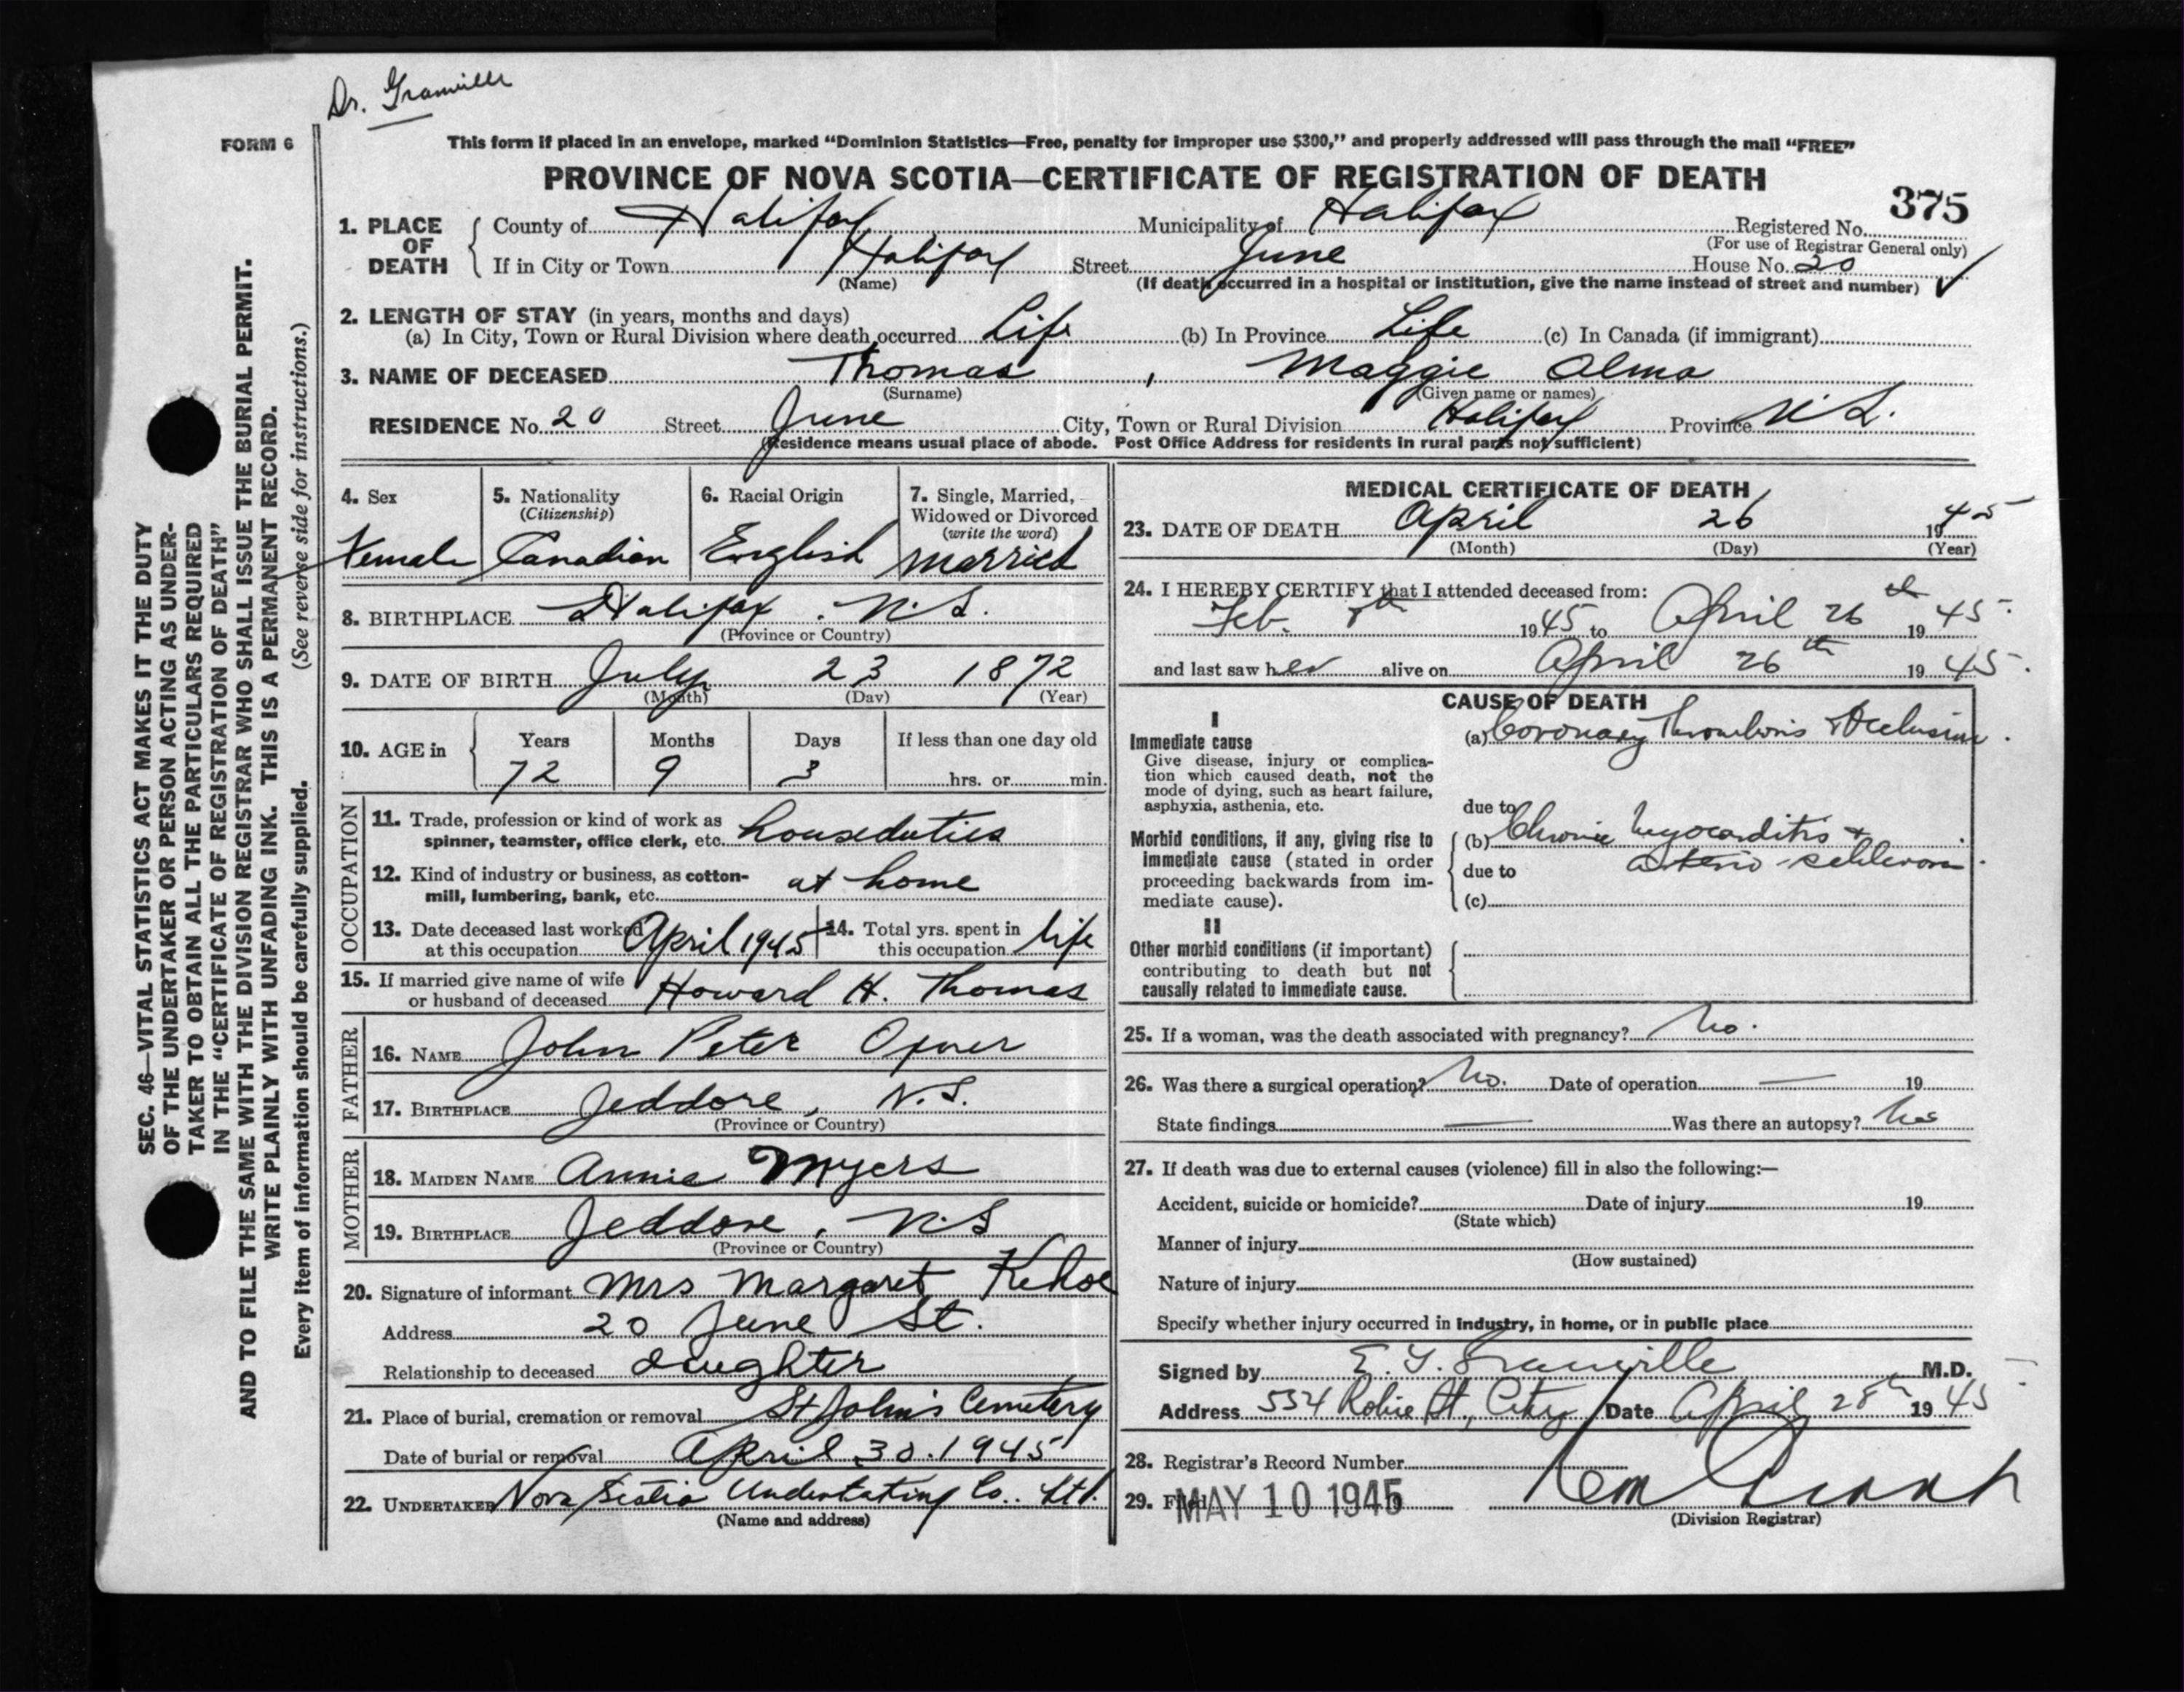 Dr. Granville
FORM 6
This form if placed in an envelope, marked “Dominion Statistics—Free, penalty for improper use $300,” and properly addressed will pass through the mail “FREE”
PROVINCE OF NOVA SCOTIA—CERTIFICATE OF REGISTRATION OF DEATH
375
1. PLACE OF DEATH
County of Halifax Municipality of Halifax Registered No.
(For use of Registrar General only)
If in City or Town Halifax Street June House No. 20 ✓
(Name) (If death occurred in a hospital or institution, give the name instead of street and number)
2. LENGTH OF STAY (in years, months and days)
(a) In City, Town or Rural Division where death occurred Life (b) In Province Life (c) In Canada (if immigrant)
3. NAME OF DECEASED Thomas , Maggie Alma
(Surname) (Given name or names)
RESIDENCE No. 20 Street June City, Town or Rural Division Halifax Province N.S.
(Residence means usual place of abode. Post Office Address for residents in rural parts not sufficient)
SEC. 46—VITAL STATISTICS ACT MAKES IT THE DUTY
OF THE UNDERTAKER OR PERSON ACTING AS UNDER-
TAKER TO OBTAIN ALL THE PARTICULARS REQUIRED
IN THE “CERTIFICATE OF REGISTRATION OF DEATH”
AND TO FILE THE SAME WITH THE DIVISION REGISTRAR WHO SHALL ISSUE THE BURIAL PERMIT.
WRITE PLAINLY WITH UNFADING INK. THIS IS A PERMANENT RECORD.
Every item of information should be carefully supplied. (See reverse side for instructions.)
4. Sex
Female
5. Nationality
(Citizenship)
Canadian
6. Racial Origin
English
7. Single, Married,
Widowed or Divorced
(write the word)
Married
8. BIRTHPLACE Halifax. N.S.
(Province or Country)
9. DATE OF BIRTH July 23 1872
(Month) (Day) (Year)
10. AGE in
Years Months Days If less than one day old
72 9 3 hrs. or min.
OCCUPATION
11. Trade, profession or kind of work as
spinner, teamster, office clerk, etc. houseduties
12. Kind of industry or business, as cotton-
mill, lumbering, bank, etc. at home
13. Date deceased last worked
at this occupation April 1945
14. Total yrs. spent in
this occupation life
15. If married give name of wife
or husband of deceased Howard H. Thomas
FATHER
16. NAME John Peter Oxner
17. BIRTHPLACE Jeddore, N.S.
(Province or Country)
MOTHER
18. MAIDEN NAME Annie Myers
19. BIRTHPLACE Jeddore, N.S
(Province or Country)
20. Signature of informant Mrs Margaret Kehoe
Address 20 June St.
Relationship to deceased daughter
21. Place of burial, cremation or removal St John's Cemetery
Date of burial or removal April 30. 1945
22. UNDERTAKER Nova Scotia Undertaking Co.. Ltd.
(Name and address)
MEDICAL CERTIFICATE OF DEATH
23. DATE OF DEATH April 26 1945
(Month) (Day) (Year)
24. I HEREBY CERTIFY that I attended deceased from:
Feb. 8th 1945 to April 26th 1945.
and last saw her alive on April 26th 1945.
CAUSE OF DEATH
I
Immediate cause
Give disease, injury or complica-
tion which caused death, not the
mode of dying, such as heart failure,
asphyxia, asthenia, etc.
(a) Coronary Thrombosis & Occlusion.
due to
Morbid conditions, if any, giving rise to
immediate cause (stated in order
proceeding backwards from im-
mediate cause).
(b) Chronic Myocarditis +
due to
(c)
II
Other morbid conditions (if important)
contributing to death but not
causally related to immediate cause.
25. If a woman, was the death associated with pregnancy? No.
26. Was there a surgical operation? No. Date of operation — 19
State findings — Was there an autopsy? No
27. If death was due to external causes (violence) fill in also the following:—
Accident, suicide or homicide? Date of injury 19
(State which)
Manner of injury
(How sustained)
Nature of injury
Specify whether injury occurred in industry, in home, or in public place
Signed by E. G. Granville M.D.
Address 554 Robie St, City Date April 28th 1945
28. Registrar's Record Number
29. Filed MAY 10 1945
(Division Registrar)